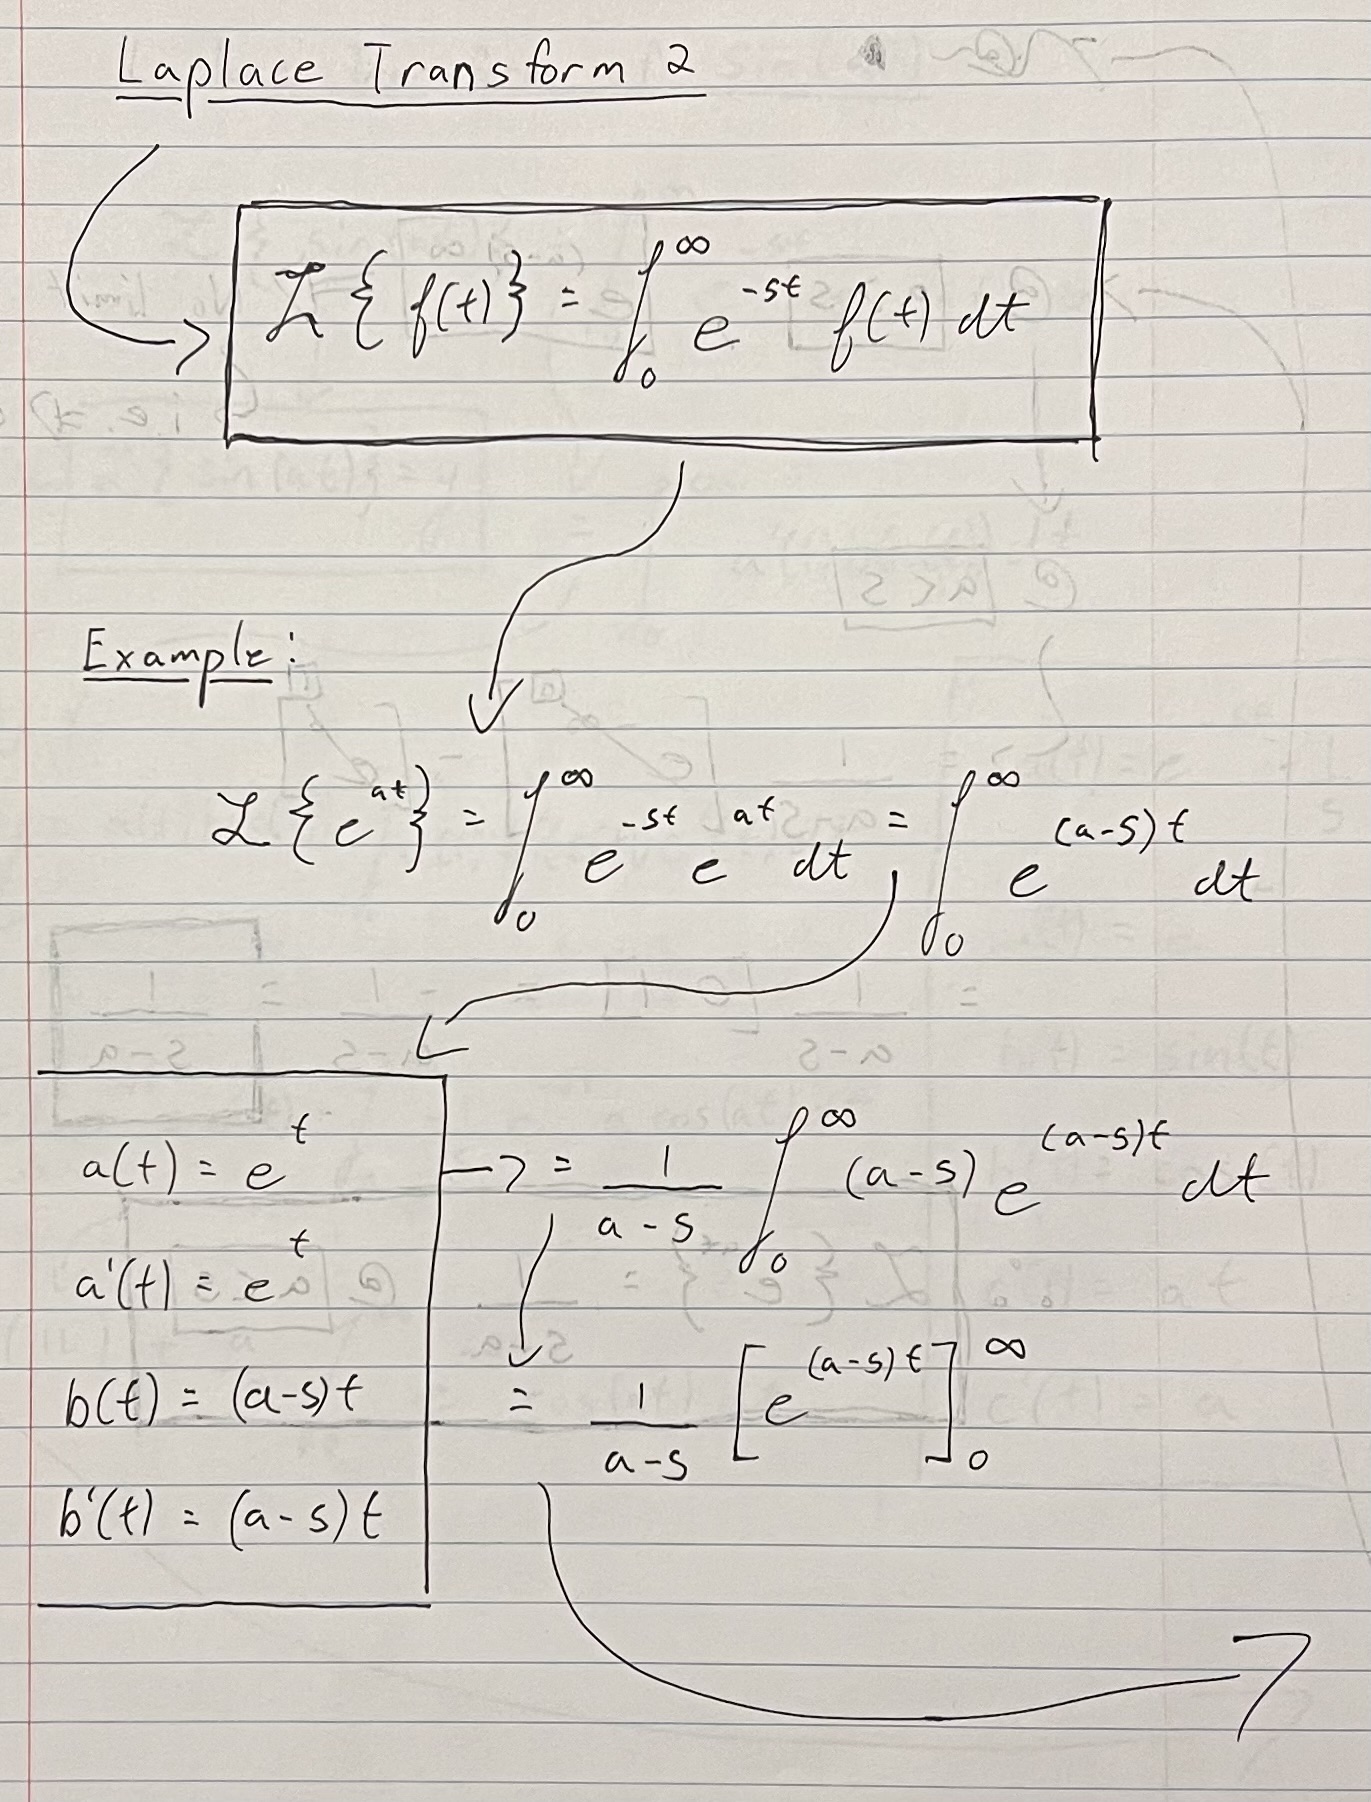 Laplace Transform 2
ℒ{f(t)} = ∫₀^∞ e^(-st) f(t) dt
Example:
ℒ{e^(at)} = ∫₀^∞ e^(-st) e^(at) dt = ∫₀^∞ e^((a-s)t) dt
a(t) = e^t
a'(t) = e^t
b(t) = (a-s)t
b'(t) = (a-s)t
= 1/(a-s) ∫₀^∞ (a-s) e^((a-s)t) dt
= 1/(a-s) [e^((a-s)t)]₀^∞